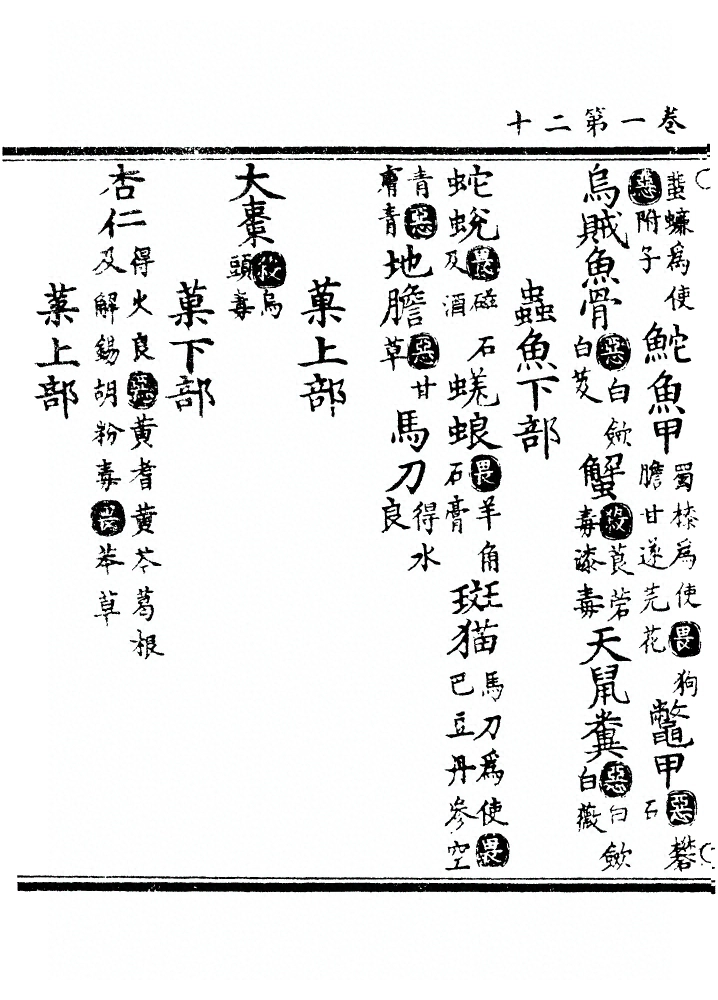 卷一第二十
蜚蠊為使惡附子 鮀魚甲 蜀椂為使畏狗膽甘遂芫花 鱉甲 惡礬石
烏賊魚骨 惡白歛白芨 蟹 殺莨菪毒漆毒 天鼠糞 惡白歛白薇
蟲魚下部
蛇蛻 畏磁石及酒 蜣蜋 畏羊角石膏 斑猫 馬刀為使畏巴豆丹參空
青惡膚青 地膽 惡甘草 馬刀 得水良
菓上部
大棗 殺烏頭毒
菓下部
杏仁 得火良惡黃耆黃芩葛根及解錫胡粉毒畏苯草
菜上部